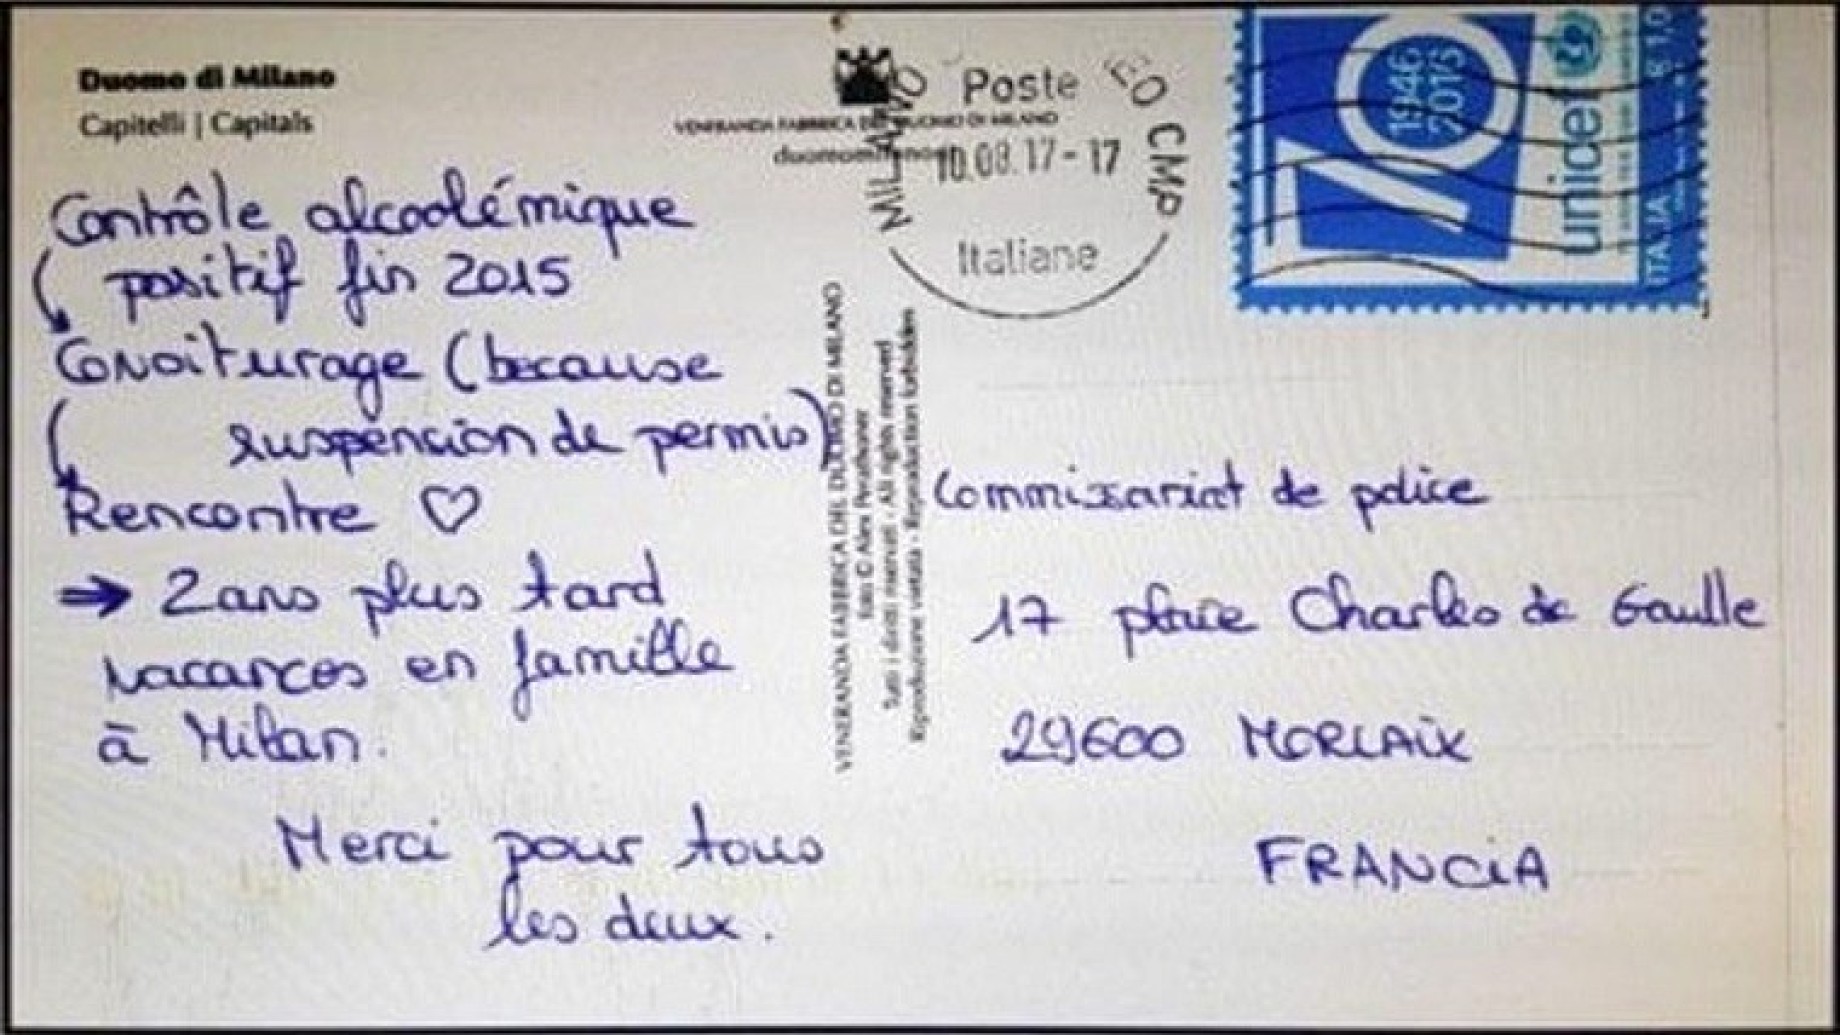 Duomo di Milano
Capitelli | Capitals
VENERANDA FABBRICA DEL DUOMO DI MILANO
Contrôle alcoolémique
positif fin 2015
Covoiturage (because
suspension de permis)
Rencontre ♡
⇒ 2 ans plus tard
vacances en famille
à Milan.
Merci pour tous
les deux.
VENERANDA FABBRICA DEL DUOMO DI MILANO
Foto © Alex
Tutti i diritti riservati - All rights reserved
Riproduzione vietata - Reproduction forbidden
MILANO CMP
Poste
10.08.17-17
Italiane
70
1946
2016
unicef
ITALIA
Commissariat de police
17 place Charles de Gaulle
29600 MORLAIX
FRANCIA